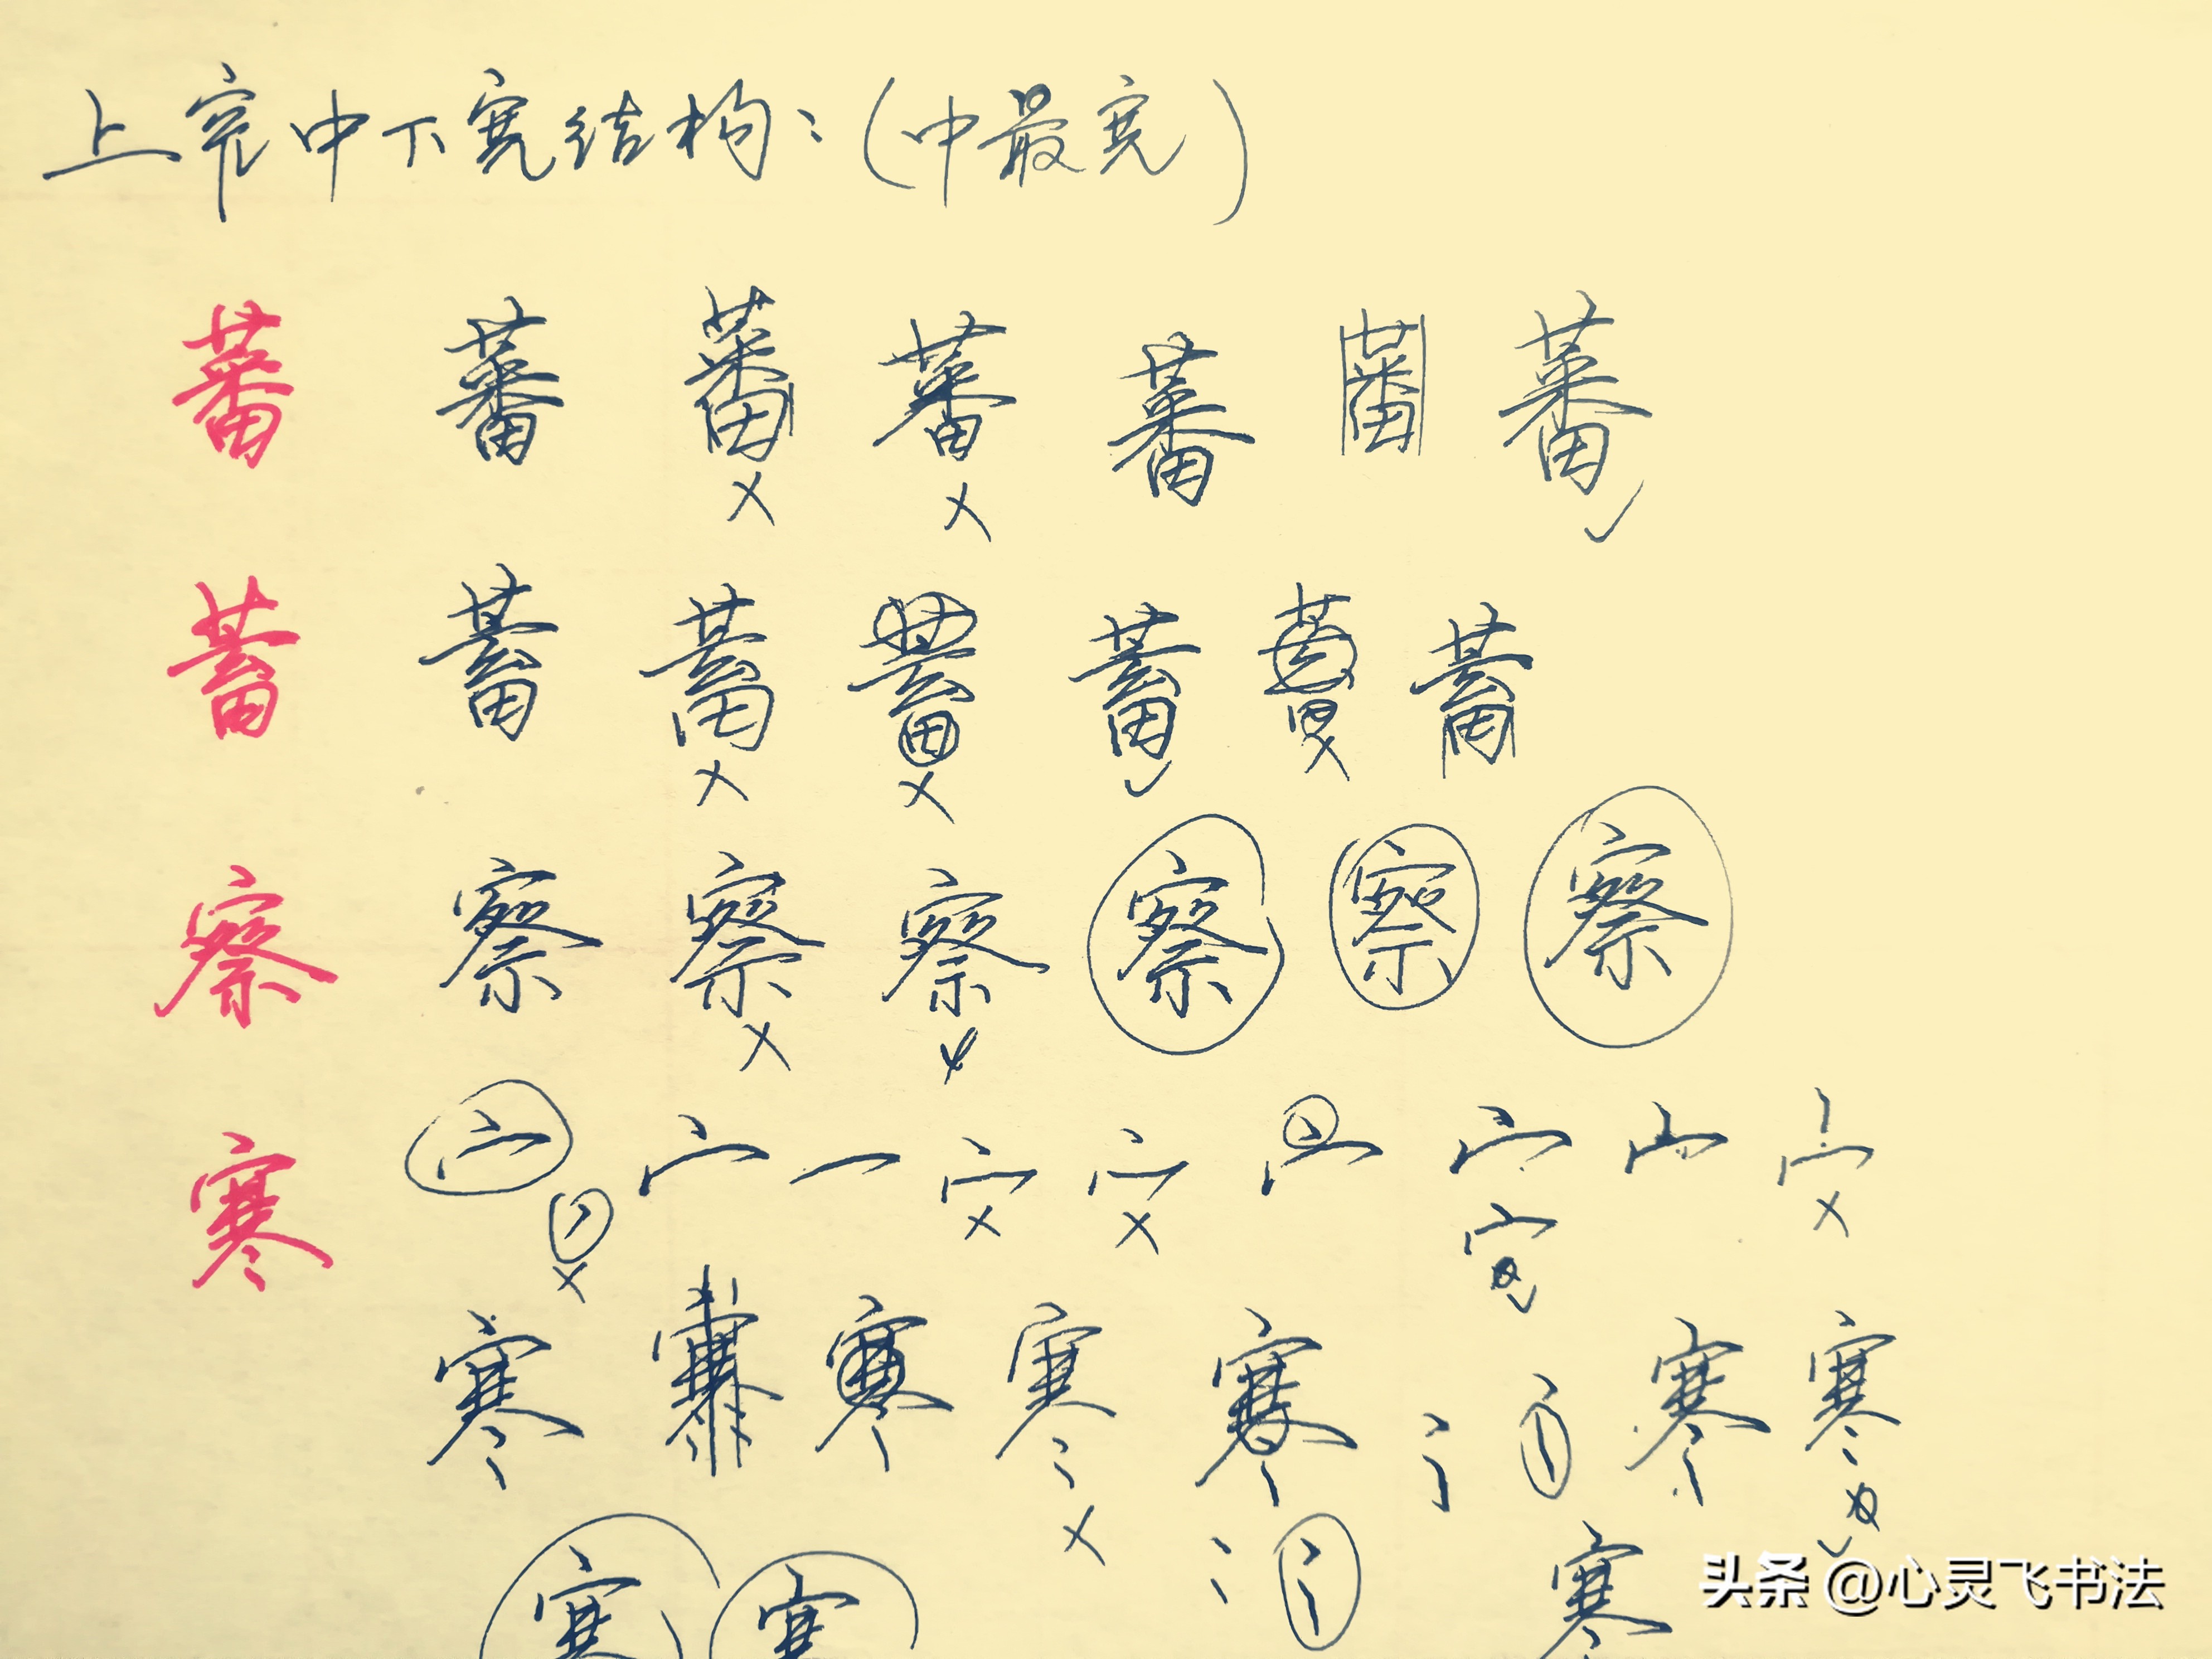 上窄中下宽结构:(中最宽)
蕃 蕃 蕃 蕃 蕃 蕃 蕃
蓄 蓄 蓄 蓄 蓄 蓄 蓄
察 察 察 察 察 察 察
寒 宀 宀 冖 宀 宀 宀 宀 宀 宀
宀
寒 寒 寒 寒 寒 寒 寒
寒 寒 寒
头条 @心灵飞书法